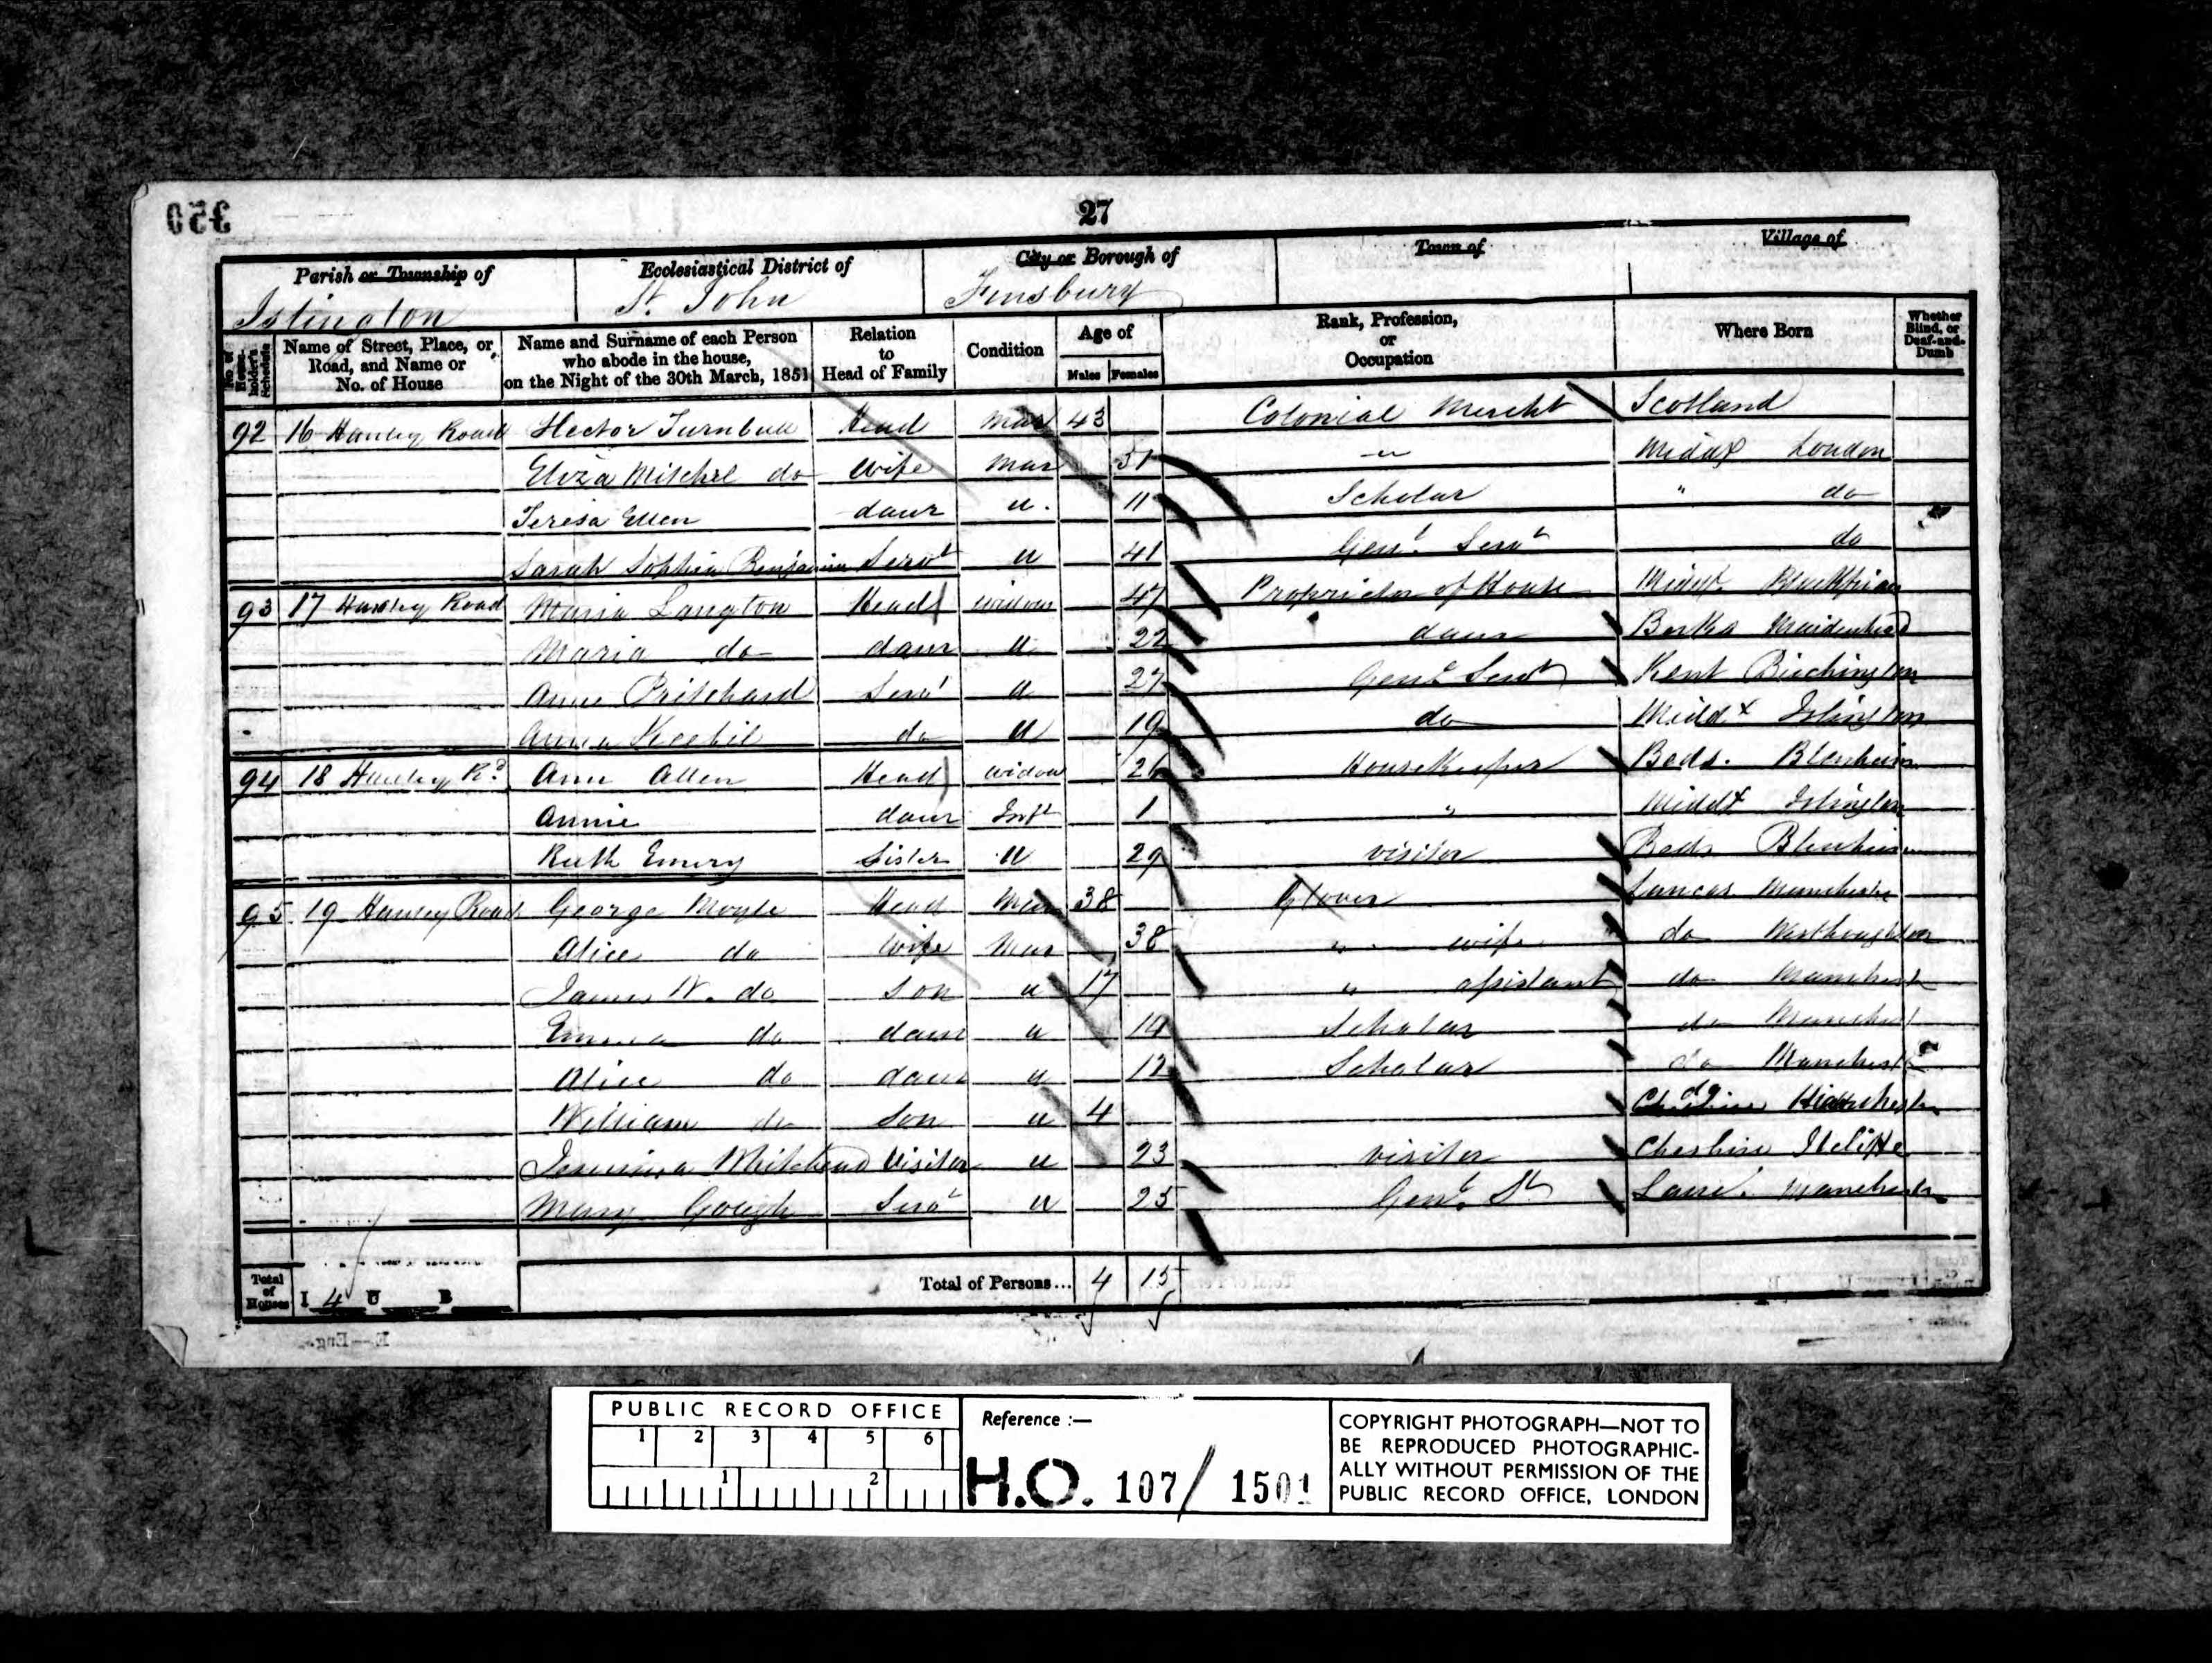 350
27
Parish or Township of
Ecclesiastical District of
City or Borough of
Town of
Village of
Islington
St. John
Finsbury
No. of House-holder's Schedule
Name of Street, Place, or Road, and Name or No. of House
Name and Surname of each Person who abode in the house, on the Night of the 30th March, 1851
Relation to Head of Family
Condition
Age of
Males Females
Rank, Profession, or Occupation
Where Born
Whether Blind, or Deaf-and-Dumb
92 16 Hanley Road Hector Turnbull Head Mar 43 Colonial Mercht Scotland
Eliza Mitchel do Wife Mar 31 Middx London
Teresa Ellen daur u. 11 Scholar " do
Sarah Sophia Benjamin Servt u 41 Genl. Servt do
93 17 Hanley Road Maria Langton Head Widow 47 Proprietor of House Middx. Blackfriars
Maria do daur u 22 daur Berks Maidenhead
Anne Pritchard Servt u 27 Genl Servt Kent Birchington
Anna do u 19 do Middx Islington
94 18 Hanley Rd. Ann Allen Head Widow 26 HouseKeeper Beds. Blenheim
Annie daur Inft 1 " Middx Islington
Ruth Emery Sister u 29 visitor Beds Blenheim
95 19 Hanley Road George Moyle Head Mar 38 Glover Lancas Manchester
Alice do Wife Mar 38 " wife do Westhoughton
James W. do Son u 17 " assistant do Manchester
Emma do daur u 14 Scholar do Manchest
Alice do daur u 12 Scholar do Manchester
William do Son u 4 do Manchester
Jemima Whitehead Visitor u 23 visitor Cheshire
Mary Gough Servt u 25 Genl. St Lanc. Manchester
Total of Houses I 4 U B
Total of Persons... 4 15
E—Eng.
PUBLIC RECORD OFFICE
1 2 3 4 5 6
1 2
Reference :—
H.O. 107/ 1501
COPYRIGHT PHOTOGRAPH—NOT TO
BE REPRODUCED PHOTOGRAPHIC-
ALLY WITHOUT PERMISSION OF THE
PUBLIC RECORD OFFICE, LONDON